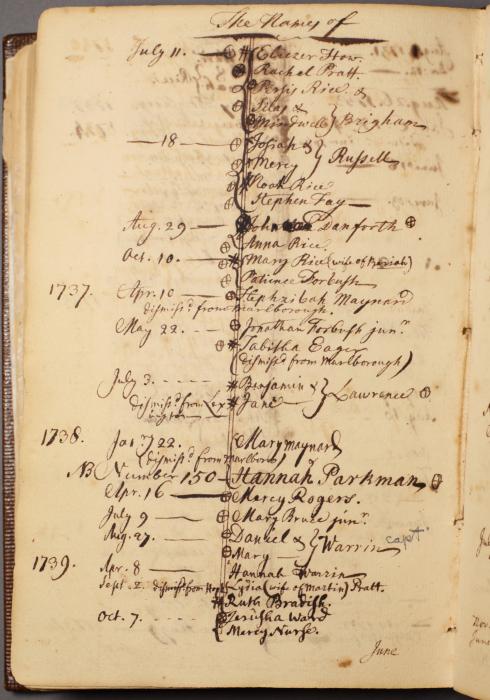 The Names of
July 11. Eliezer How.
Rachel Pratt
Persis Rice. &
Silas &
Mindwell } Brigham
18 Josiah &
Mercy } Russell
Noah Rice
Stephen Fay
Aug. 29 John Danforth
Anna Rice
Oct. 10. Mary Rice (wife of
Patience Forbush
1737. Apr. 10 Hephzibah Maynard
dismiss'd from Marlborough.
May 22. Jonathan Forbush junr.
Tabitha Eager
(dismiss'd from Marlborough)
July 3. Benjamin &
dismiss'd from Lex Jane } Lawrence
ington
1738. Jan'y 22. Mary Maynard
(dismiss'd from Marlboro
NB Number 150 Hannah Parkman
Apr. 16 Mercy Rogers.
July 9 Mary Bruce junr.
Aug. 27. Daniel & } Warrin capt.
Mary
1739. Apr. 8 Hannah Warrin
Sept. 2. dismiss'd from Lydia (wife of Martin) Pratt.
Ruth Bradish.
Oct. 7. Jerusha Ward
Mercy Nurse.
June